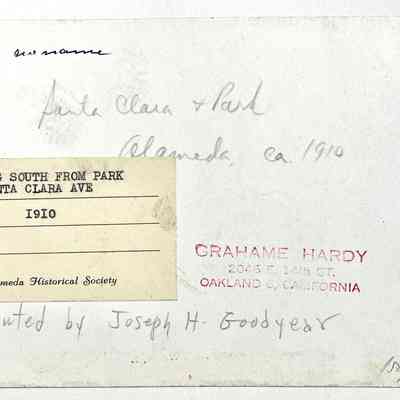 no name
Santa Clara + Park
Alameda, ca. 1910
G SOUTH FROM PARK
NTA CLARA AVE
1910
meda Historical Society
GRAHAME HARDY
2046 E. 14th ST.
OAKLAND 6, CALIFORNIA
uted by Joseph H. Goodyear